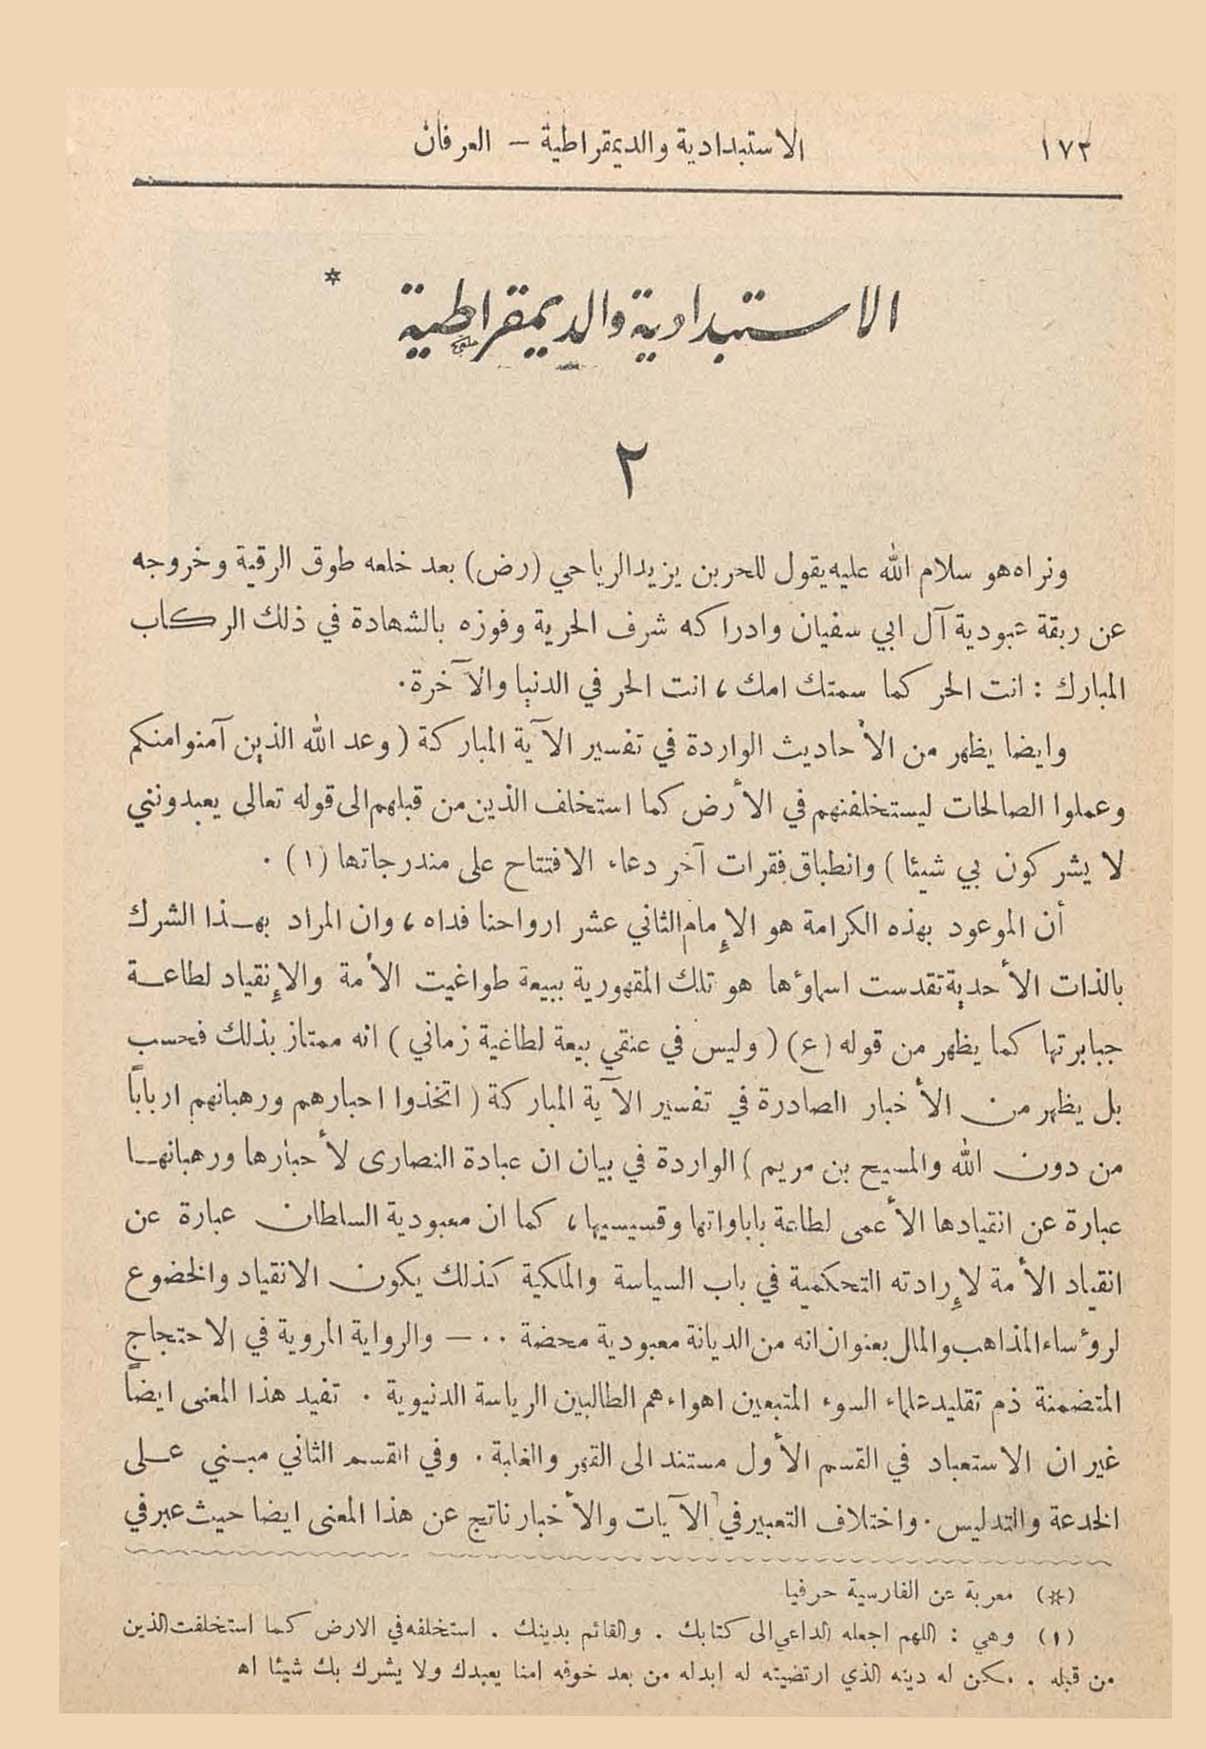 ١٧٢
الاستبدادية والديمقراطية — العرفان
الاستبدادية والديمقراطية *
٢
ونراه هو سلام الله عليه يقول للحر بن يزيد الرياحي (رض) بعد خلعه طوق الرقية وخروجه
عن ربقة عبودية آل ابي سفيان وادراكه شرف الحرية وفوزه بالشهادة في ذلك الركاب
المبارك : انت الحر كما سمتك امك ، انت الحر في الدنيا والآخرة .
وايضا يظهر من الأحاديث الواردة في تفسير الآية المباركة ( وعد الله الذين آمنوا منكم
وعملوا الصالحات ليستخلفنهم في الأرض كما استخلف الذين من قبلهم الى قوله تعالى يعبدونني
لا يشركون بي شيئا ) وانطباق فقرات آخر دعاء الافتتاح على مندرجاتها (١) .
أن الموعود بهذه الكرامة هو الإمام الثاني عشر ارواحنا فداه ، وان المراد بهـذا الشرك
بالذات الأحدية تقدست اسماؤها هو تلك المقهورية ببيعة طواغيت الأمة والإنقياد لطاعـة
جبابرتها كما يظهر من قوله (ع) ( وليس في عنقي بيعة لطاغية زماني ) انه ممتاز بذلك فحسب
بل يظهر من الأخبار الصادرة في تفسير الآية المباركة ( اتخذوا احبارهم ورهبانهم اربابًا
من دون الله والمسيح بن مريم ) الواردة في بيان ان عبادة النصارى لأحبارها ورهبانهـا
عبارة عن انقيادها الأعمى لطاعة باباواتها وقسيسيها ، كما ان معبودية السلطان عبارة عن
انقياد الأمة لإرادته التحكمية في باب السياسة والملكية كذلك يكون الانقياد والخضوع
لرؤساء المذاهب والملل بعنوان انه من الديانة معبودية محضة .. — والرواية المروية في الاحتجاج
المتضمنة ذم تقليد علماء السوء المتبعين اهواءهم الطالبين الرياسة الدنيوية . تفيد هذا المعنى ايضاً
غير ان الاستعباد في القسم الأول مستند الى القهر والغلبة . وفي القسم الثاني مبـني عـلى
الخدعة والتدليس . واختلاف التعبير في الآيات والأخبار ناتج عن هذا المعنى ايضا حيث عبر في
(*) معربة عن الفارسية حرفيا
(١) وهي : اللهم اجعله الداعي الى كتابك . والقائم بدينك . استخلفه في الارض كما استخلفت الذين
من قبله . مكن له دينه الذي ارتضيته له ابدله من بعد خوفه امنا يعبدك ولا يشرك بك شيئا اه